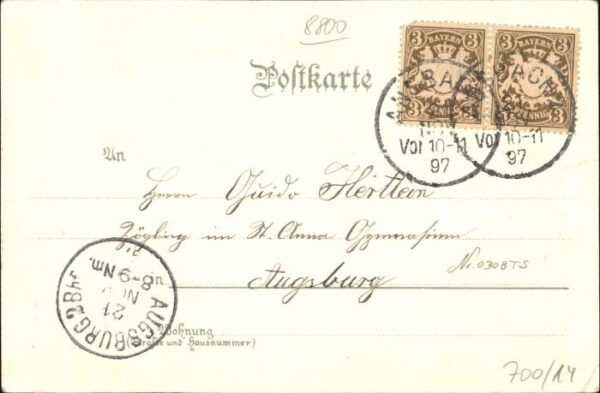 8800
3 BAYERN 3
3 BAYERN 3
PFENNIG
3 3
Postkarte
ANSBACH
21
NOV
Vor 10-11
97
21
NOV
Vor 10-11
97
An
Herrn Guido Hertlein
Zögling im St. Anna Gymnasium
in
Augsburg
No. 0308TS
AUGSBURG 2 Bhf.
21
8-9 Nm.
Wohnung
(Straße und Hausnummer)
700/14